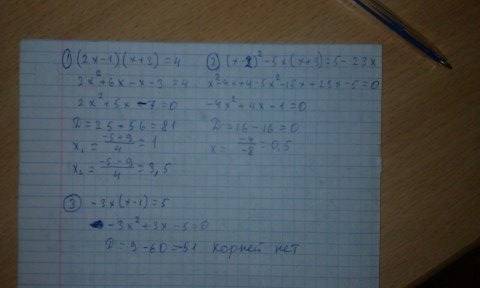 ① (2x-1)(x+3)=4
2x²+6x-x-3=4
2x²+5x-7=0
D=25+56=81
x₁=(-5+9)/4=1
x₂=(-5-9)/4=3,5
② (x-2)²-5x(x+3)=5-23x
x²-4x+4-5x²-15x+23x-5=0
-4x²+4x-1=0
D=16-16=0
x=-4/-8=0,5
③ -3x(x-1)=5
-3x²+3x-5=0
D=9-60=-51 корней нет